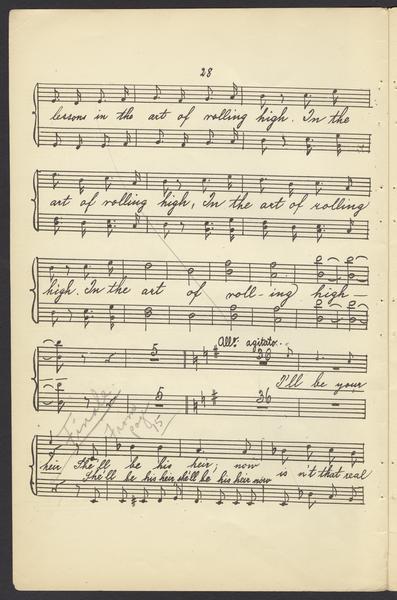 28
lessons in the art of rolling high. In the
art of rolling high, In the art of rolling
high. In the art of roll-ing high—
5 Allo. agitato. 36
I'll be your
5 36
Finale
from
page
15
heir She'll be his heir; now is n't that real
She'll be his heir she'll be his heir now